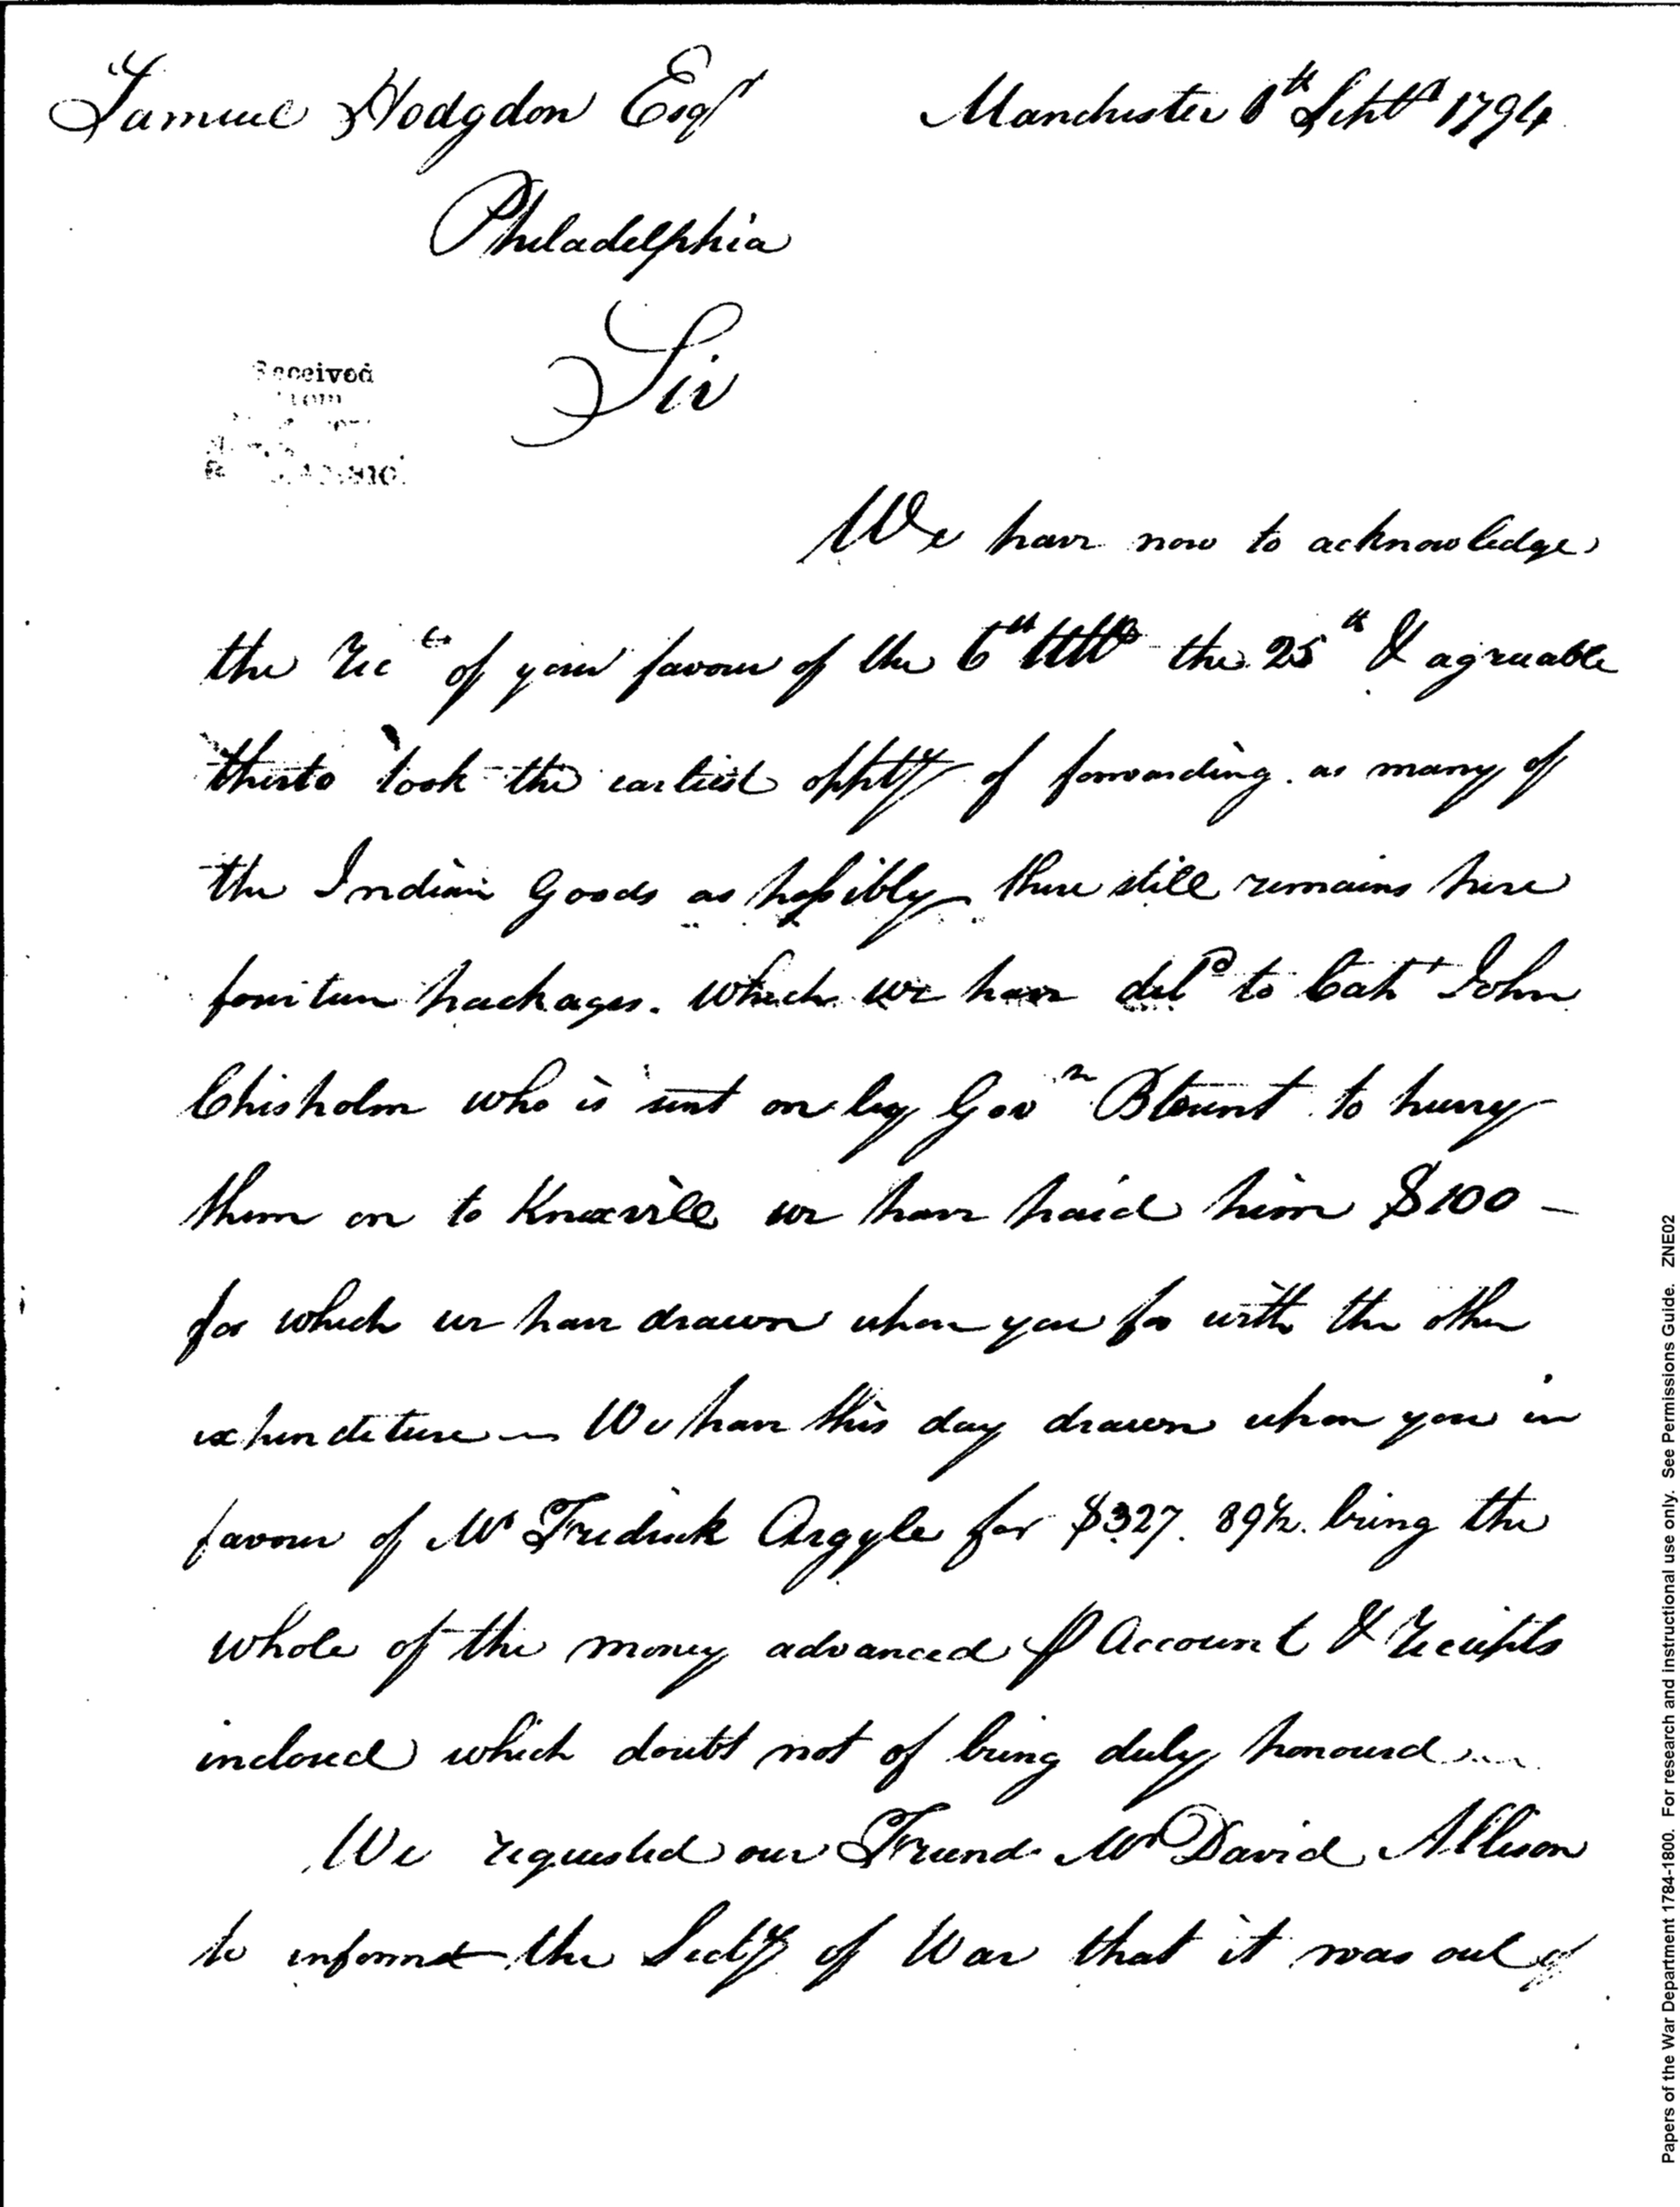 Samuel Hodgdon Esqr Manchester 8th Septr 1794
Philadelphia
Sir
Received
from
We have now to acknowledge
the Rect of your favour of the 6th Ulto the 25th & agreeable
thereto took the earliest oppty of forwarding as many of
the Indian Goods as possibly there still remains here
fourteen packages. which we have deld to Capt John
Chisholm who is sent on by Govr Blount to hurry
them on to Knoxville we have paid him $100 —
for which we have drawn upon you for with the other
expenditure — We have this day drawn upon you in
favour of Mr Fredrick Argyle for $327. 89½. being the
whole of the money advanced ⅌ Account & Receipts
inclosed which doubt not of being duly honourd
We requested our Friend Mr David Allison
to inform the Secty of War that it was out of
Papers of the War Department 1784-1800. For research and instructional use only. See Permissions Guide. ZNE02